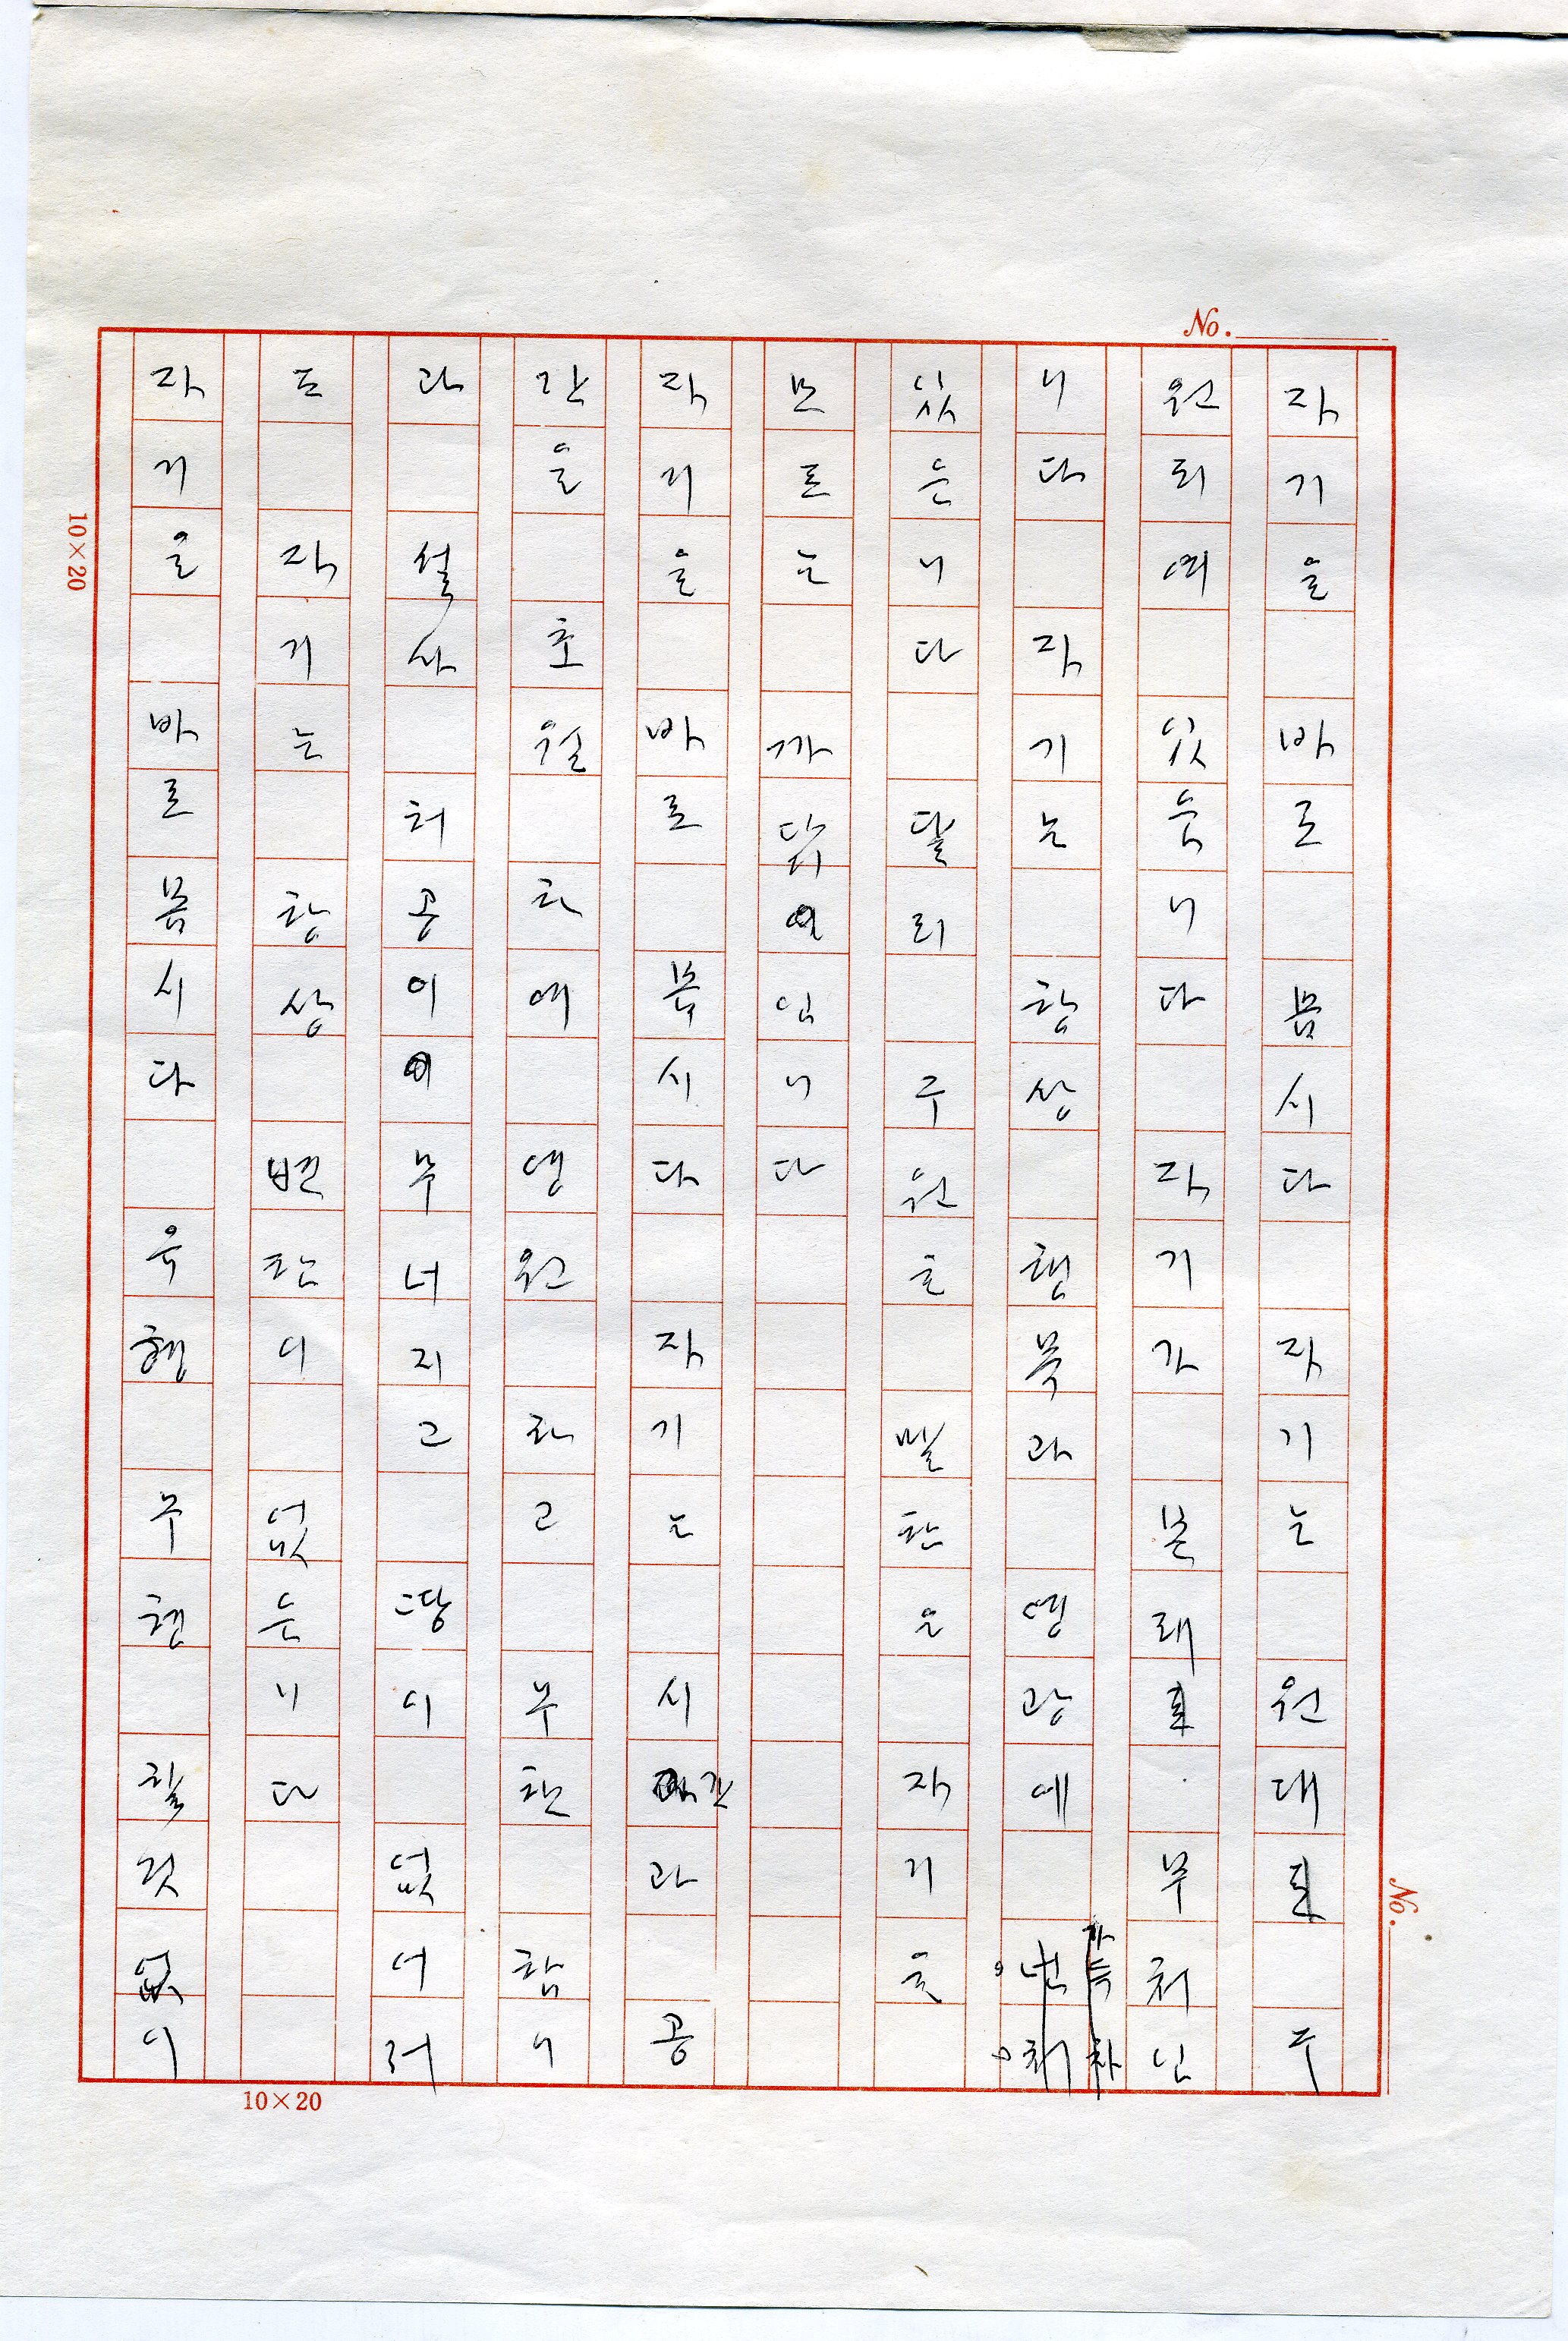 자기을 바로 봅시다 자기는 원대 구
원되여 있읍니다 자기가 본래 부처님
니다 자기는 항상 행복과 영광에 넘쳐 가득차
있은니다 달리 구원 자기을
모르는 까닭에 입니다
자기을 바로 봅시다 자기는 시간과 공
간을 초월 하여 영원 하고 무한 합니
과 설사 허공이 무너지고 땅이 없어저
도 자기는 항상 변한이 없은니다
자기을 바로 봅시다 유형 무형 할것 없이
No.
No.
10×20
10×20